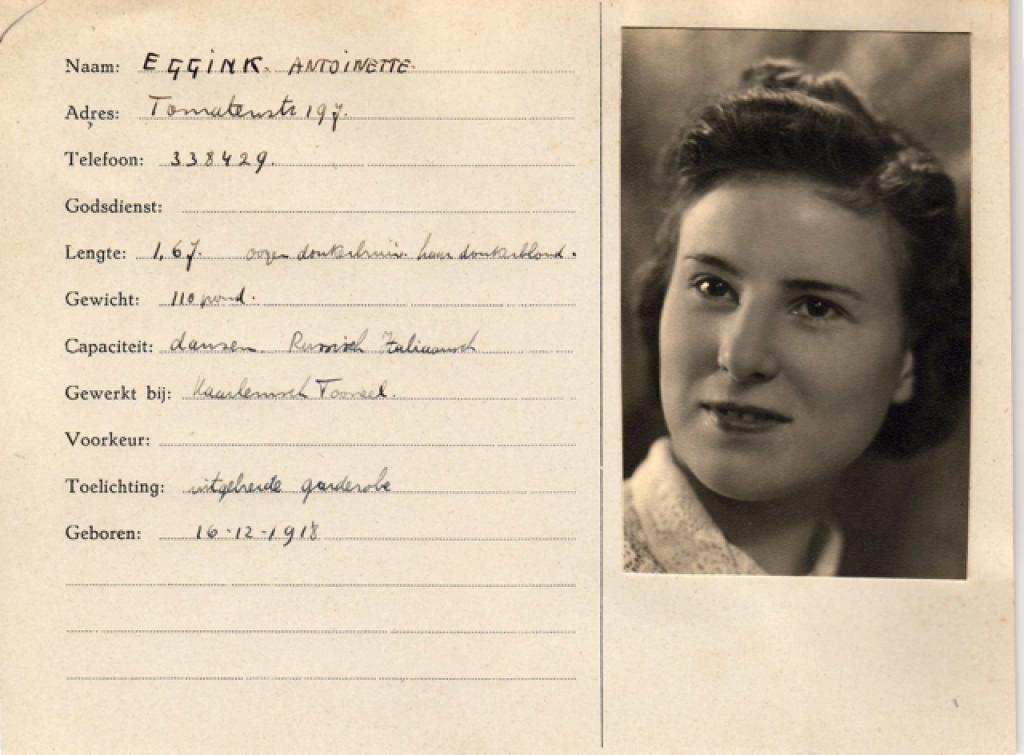 Naam: EGGINK. ANTOINETTE.
Adres: Tomatenstr 197.
Telefoon: 338429.
Godsdienst:
Lengte: 1,67. oogen donkerbruin. haar donkerblond.
Gewicht: 110 pond.
Capaciteit: dansen. Russisch Italiaansch
Gewerkt bij: Haarlemsch Tooneel.
Voorkeur:
Toelichting: uitgebreide garderobe
Geboren: 16-12-1918